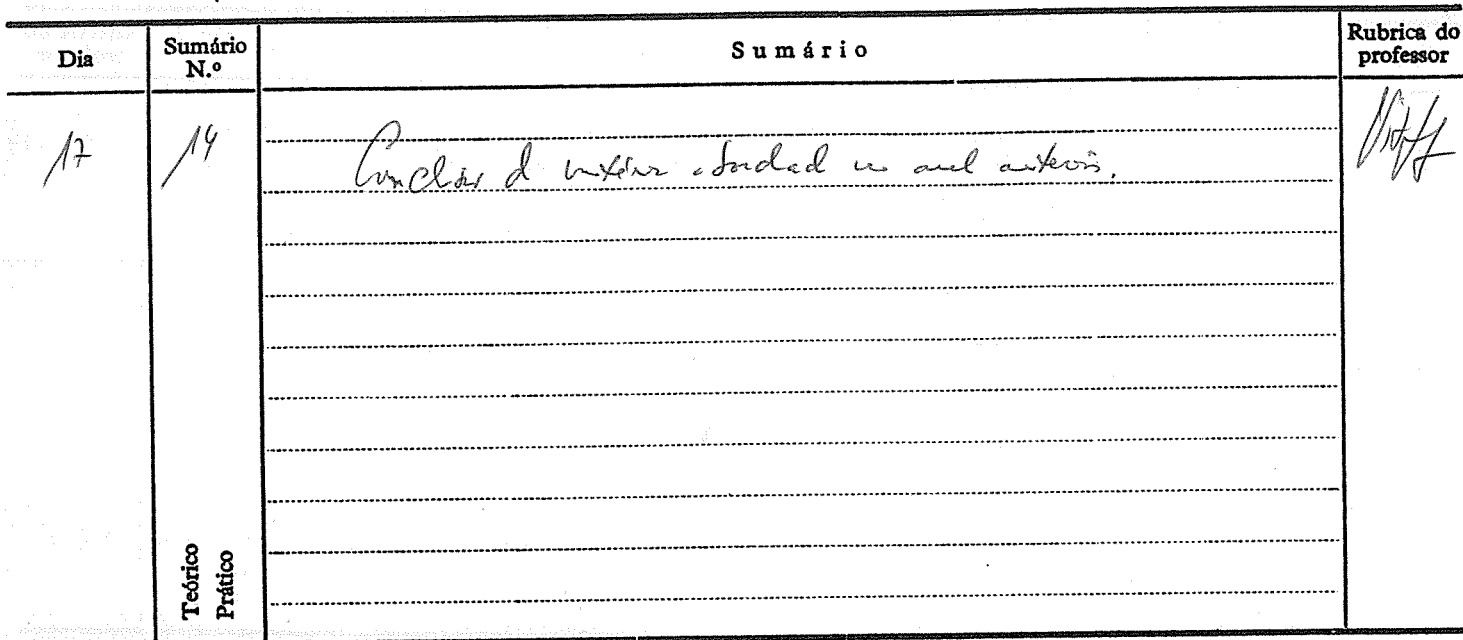 Dia Sumário N.º Sumário Rubrica do professor
17 14 Conclusão da matéria abordada na aula anterior.
Teórico
Prático